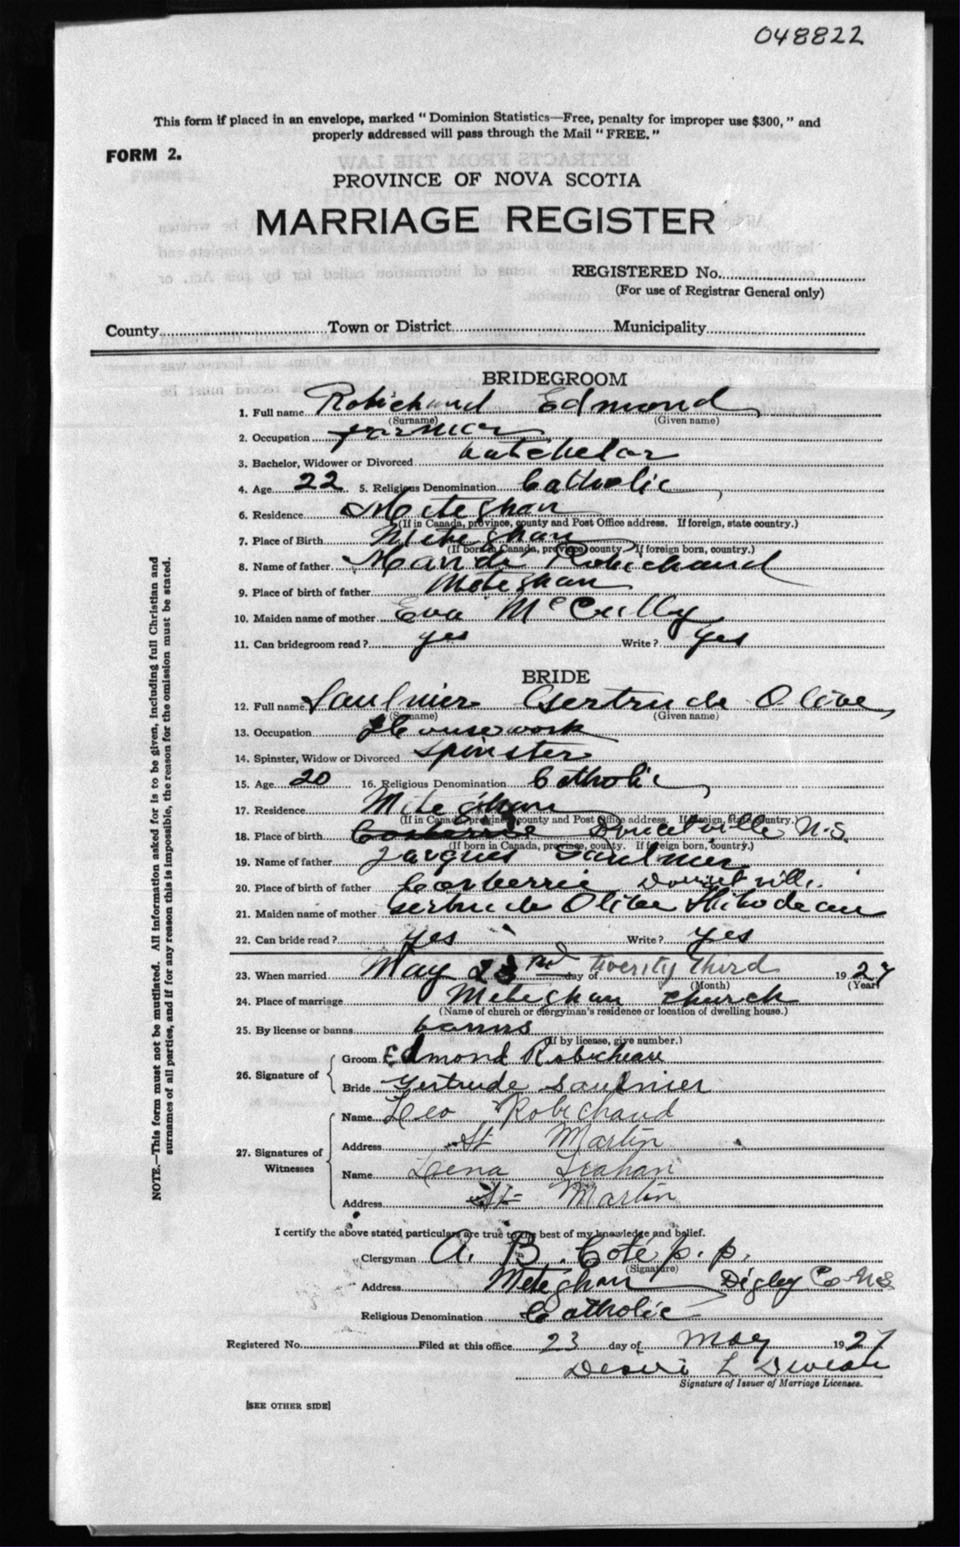 048822
This form if placed in an envelope, marked "Dominion Statistics—Free, penalty for improper use $300," and
properly addressed will pass through the Mail "FREE."
FORM 2.
PROVINCE OF NOVA SCOTIA
MARRIAGE REGISTER
REGISTERED No.
(For use of Registrar General only)
County Town or District Municipality
BRIDEGROOM
1. Full name Robichaud Edmond
(Surname) (Given name)
2. Occupation farmer
3. Bachelor, Widower or Divorced batchelor
4. Age 22 5. Religious Denomination Catholic
6. Residence Meteghan
(If in Canada, province, county and Post Office address. If foreign, state country.)
7. Place of Birth Meteghan
(If born in Canada, province, county. If foreign born, country.)
8. Name of father Mandé Robichaud
9. Place of birth of father Meteghan
10. Maiden name of mother Eva McCully
11. Can bridegroom read? yes Write? yes
BRIDE
12. Full name Saulnier Gertrude Olive
(Surname) (Given name)
13. Occupation Housework
14. Spinster, Widow or Divorced Spinster
15. Age 20 16. Religious Denomination Catholic
17. Residence Meteghan
(If in Canada, province, county and Post Office address. If foreign, state country.)
18. Place of birth Corberrie Doucetville N.S.
(If born in Canada, province, county. If foreign born, country.)
19. Name of father Jacques Saulnier
20. Place of birth of father Corberrie Doucetville
21. Maiden name of mother Gertrude Olive Thibodeau
22. Can bride read? yes Write? yes
23. When married May 23rd day of twenty third 1927
(Month) (Year)
24. Place of marriage Meteghan church
(Name of church or clergyman's residence or location of dwelling house.)
25. By license or banns banns
(If by license, give number.)
26. Signature of
Groom Edmond Robicheau
Bride Gertrude Saulnier
27. Signatures of Witnesses
Name Leo Robichaud
Address St Martin
Name Lena
Address St Martin
I certify the above stated particulars are true to the best of my knowledge and belief.
Clergyman A. B. Coté p.p.
(Signature)
Address Meteghan Digby Co N.S
Religious Denomination Catholic
Registered No. Filed at this office 23 day of May 1927
L
Signature of Issuer of Marriage Licenses.
[SEE OTHER SIDE]
NOTE.—This form must not be mutilated. All information asked for is to be given, including full Christian and
surnames of all parties, and if for any reason this is impossible, the reason for the omission must be stated.